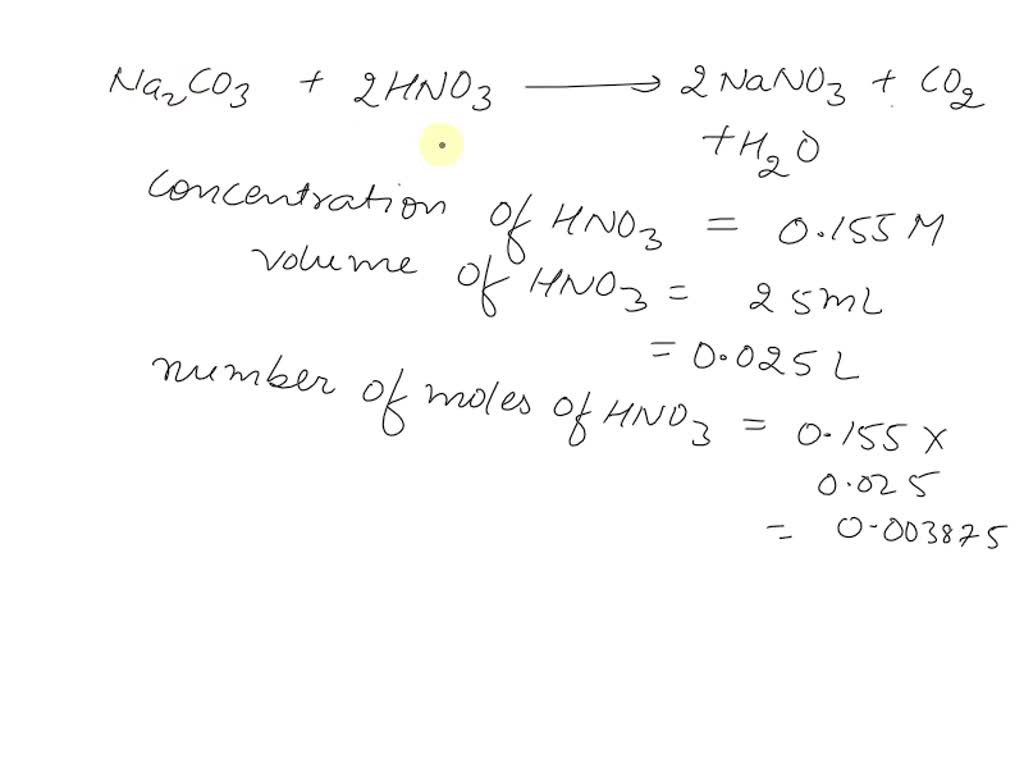 Na₂CO₃ + 2HNO₃ ⟶ 2NaNO₃ + CO₂
+H₂O
concentration of HNO₃ = 0.155 M
volume of HNO₃ = 25mL
= 0.025 L
number of moles of HNO₃ = 0.155 X
0.025
= 0.003875